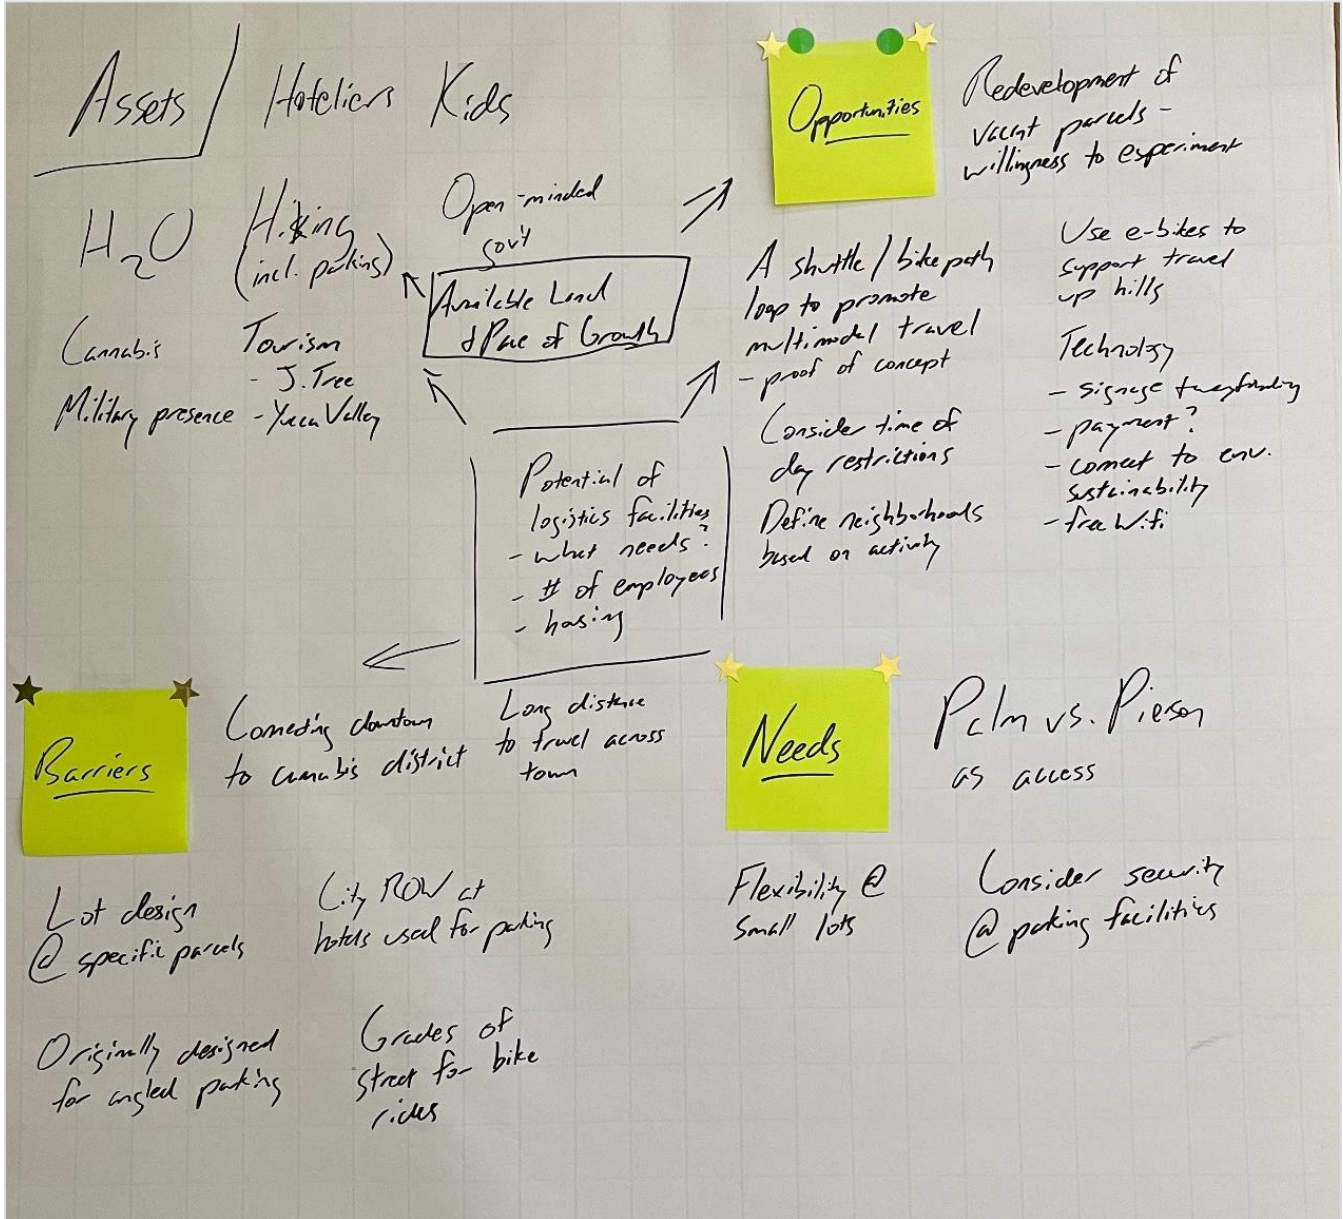 Assets
Hoteliers
Kids
H2O
Hiking
(incl. parking)
Open-minded
gov't
Available Land
& Pace of Growth
Cannabis
Tourism
- J. Tree
- Yucca Valley
Military presence
Opportunities
Redevelopment of
vacant parcels -
willingness to experiment
A shuttle/bike path
loop to promote
multimodal travel
- proof of concept
Consider time of
day restrictions
Define neighborhoods
based on activity
Use e-bikes to
support travel
up hills
Technology
- signage + wayfinding
- payment?
- connect to env.
sustainability
- free Wifi
Potential of
logistics facilities
- what needs?
- # of employees
- housing
Barriers
Connecting downtown
to cannabis district
Long distance
to travel across
town
Lot design
@ specific parcels
City ROW at
hotels used for parking
Originally designed
for angled parking
Grades of
street for bike
rides
Needs
Palm vs. Pierson
as access
Flexibility @
small lots
Consider security
@ parking facilities